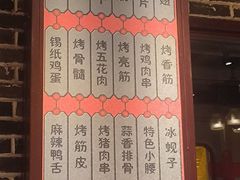 翅 片
锡纸鸡蛋 烤骨髓 烤五花肉 烤亮筋 烤鸡肉串 烤香筋
麻辣鸭舌 烤筋皮 烤猪肉串 蒜香排骨 特色小腰 冰蚬子